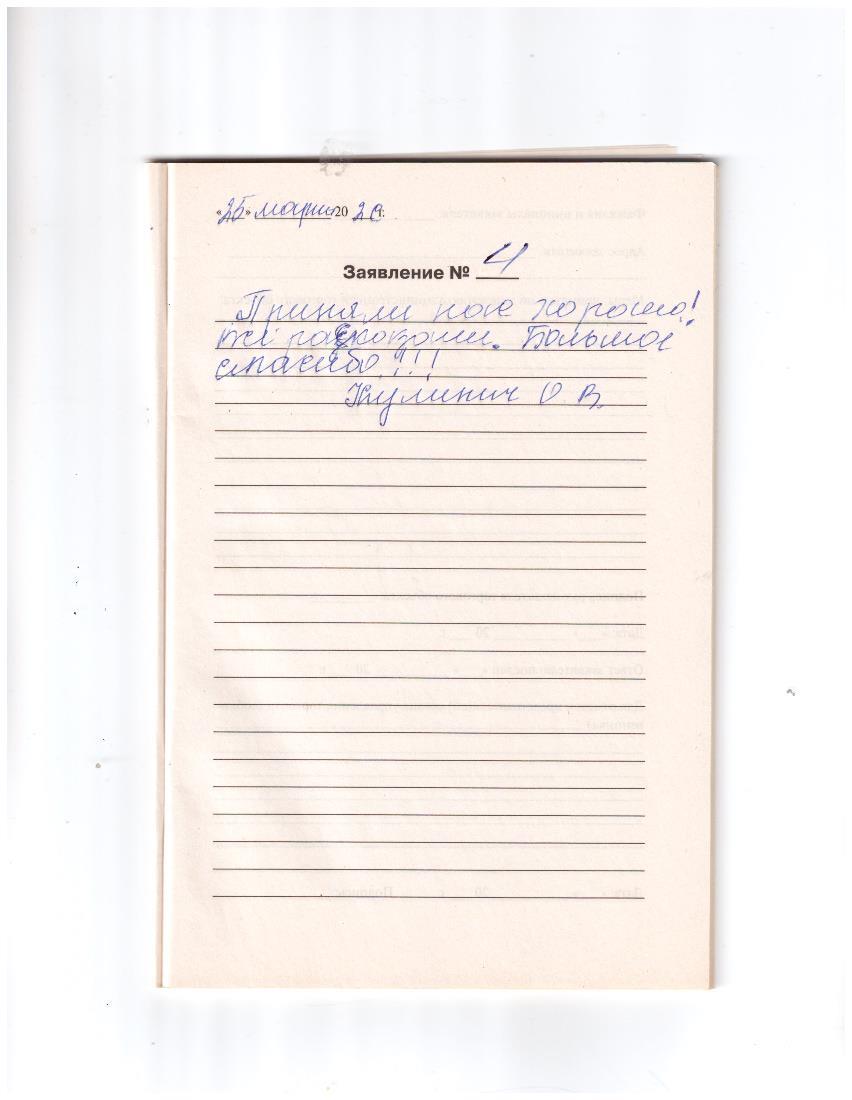 «25» марта 2020 г.
Заявление № 4
Приняли нас хорошо!
всё рассказали. Большое
спасибо!!!
Кулинич О.В.